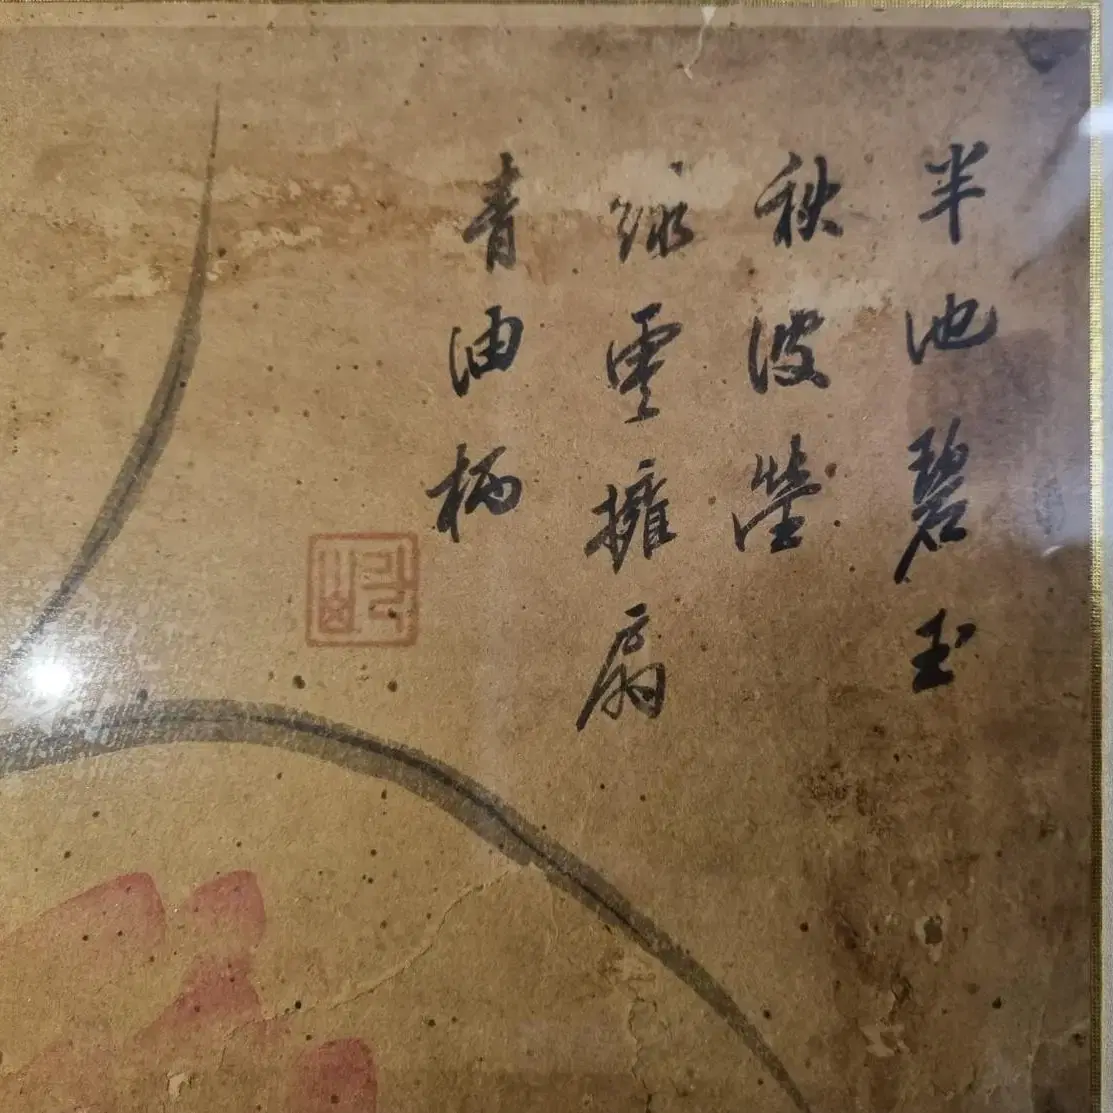 半池碧玉
秋波瑩
綠雲擁扇
青油柄